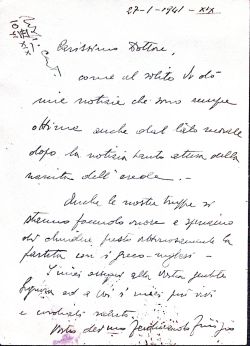 27-1-1941-XIX
Carissimo Dottore,
come al solito Vi dò
mie notizie che sono sempre
ottime anche dal lato morale
dopo la notizia tanto attesa della
nascita dell'erede.-
Anche le nostre truppe si
stanno facendo onore e speriamo
di chiudere presto vittoriosamente la
partita con i greco-inglesi-
I miei ossequi alla Vostra gentile
Signora ed a Voi i miei più vivi
e cordiali saluti.
Vostro dev.mo